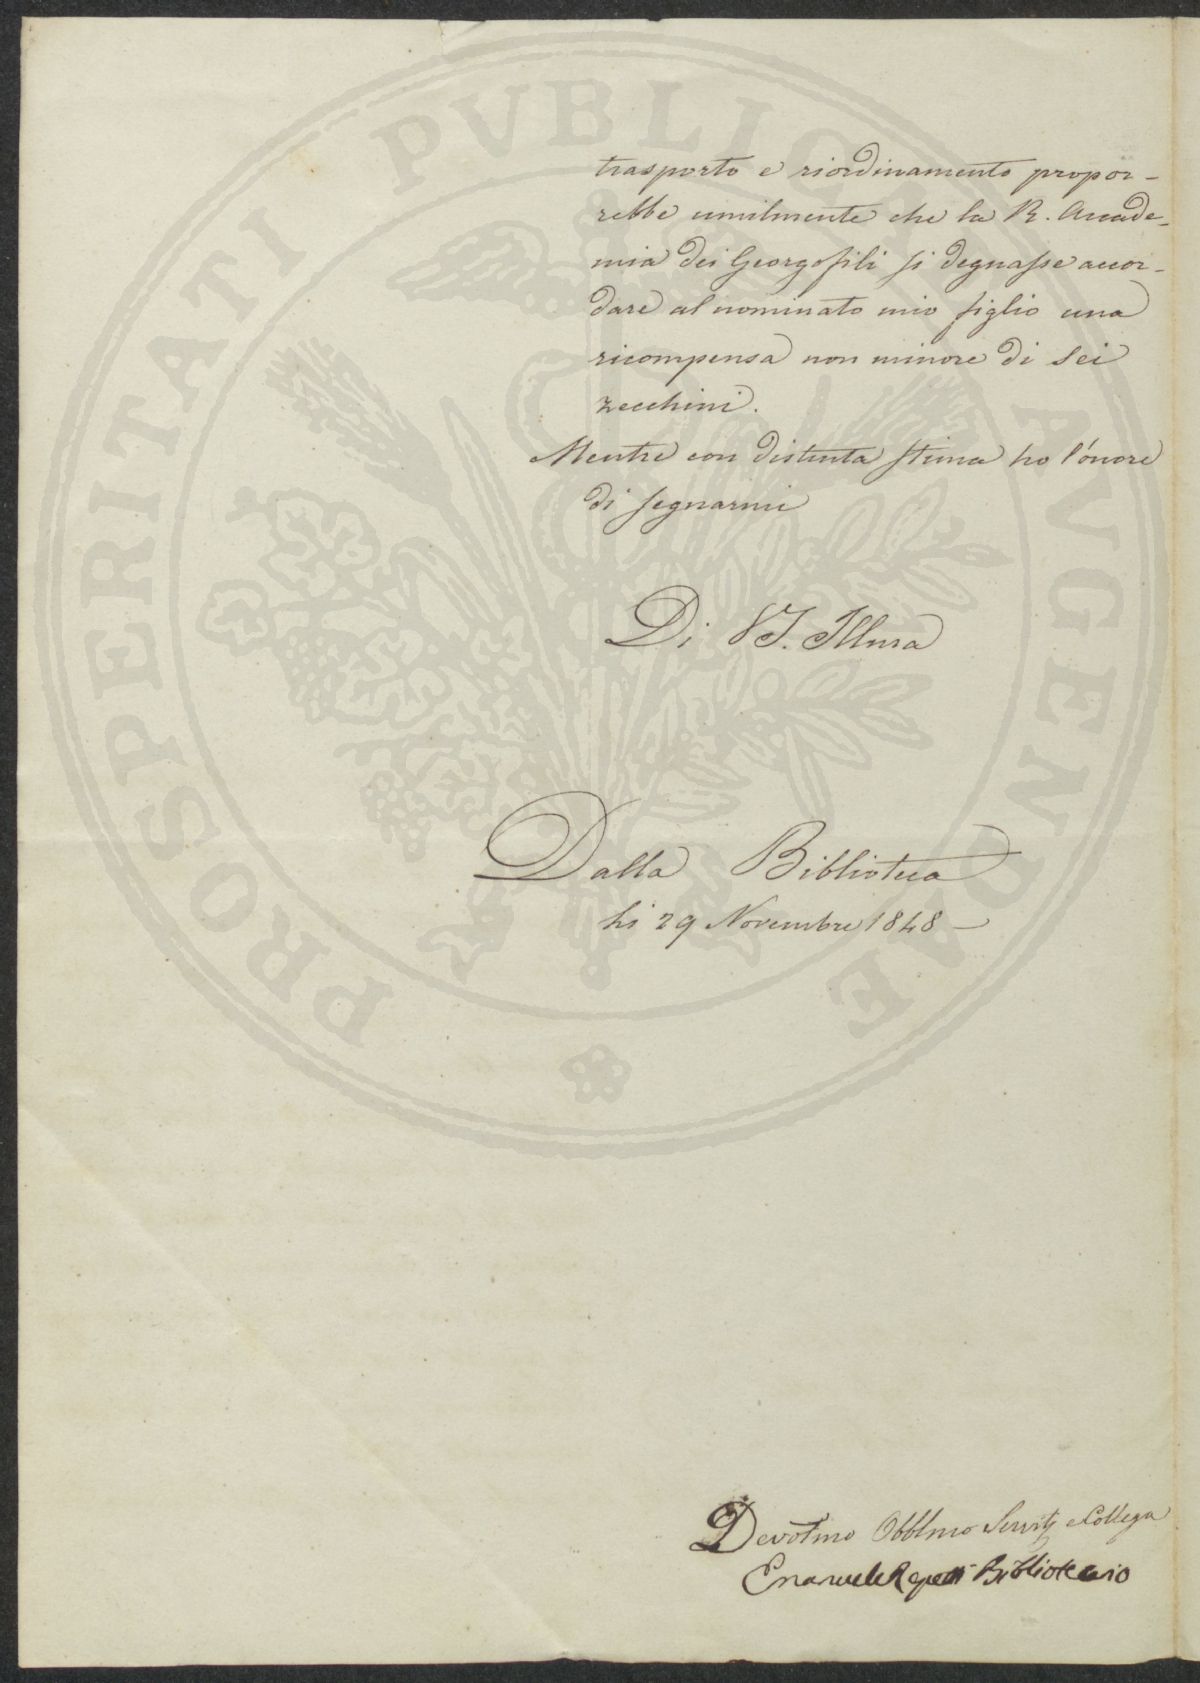 trasporto e riordinamento propor-
rebbe umilmente che la R. Accade-
mia dei Georgofili si degnasse accor-
dare al nominato mio figlio una
ricompensa non minore di sei
zecchini.
Mentre con distinta stima ho l'onore
di segnarmi
Di VS. Illma
Dalla Biblioteca
li 29 Novembre 1848 -
Devotmo Obblmo Servitr e Collega
Emanuele Repetti Bibliotecario
PROSPERITATI PVBLICAE AVGENDAE